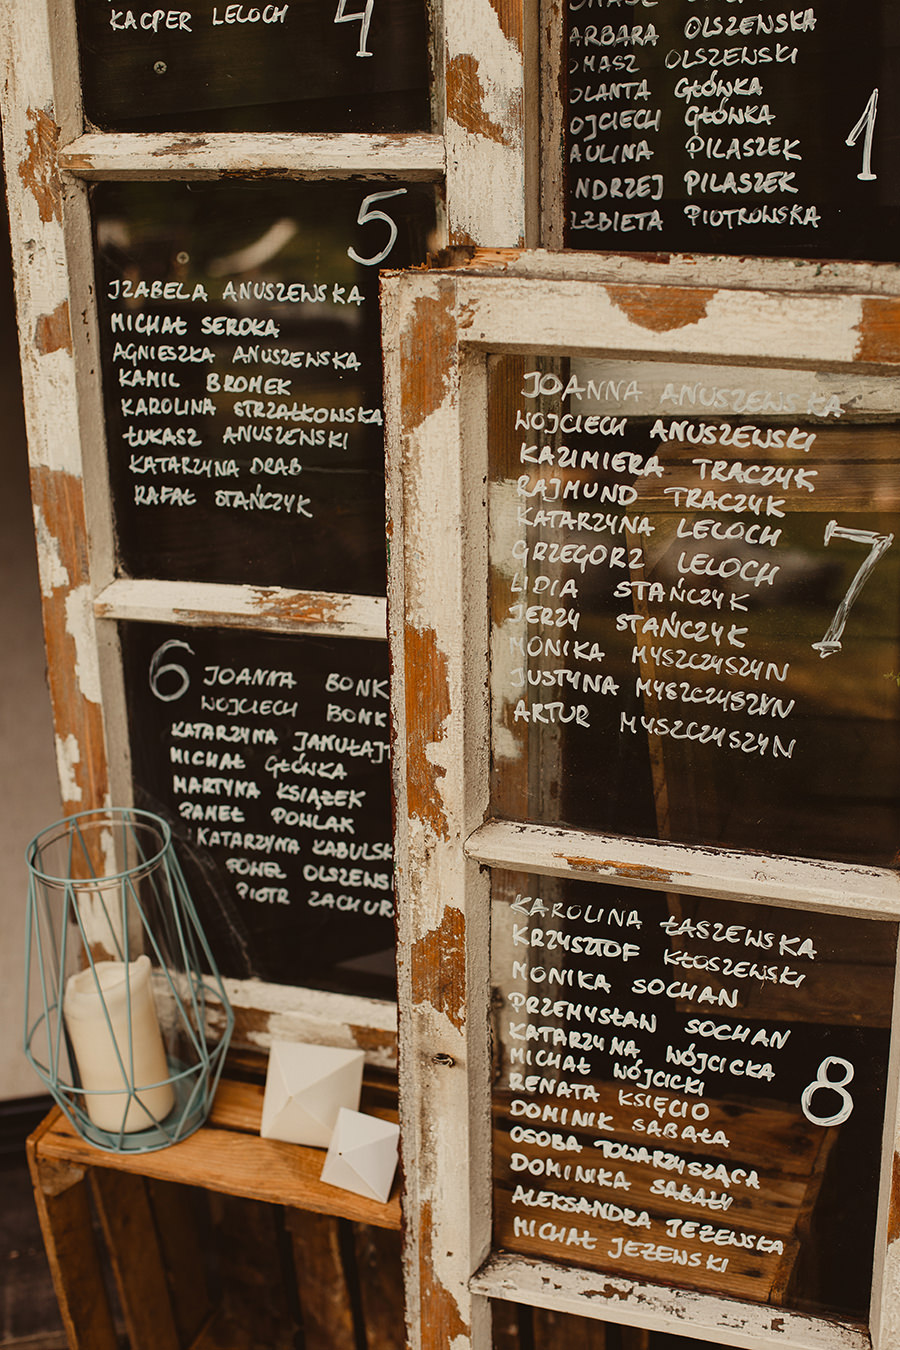 KACPER LELOCH
4
5
IZABELA ANUSZEWSKA
MICHAŁ SEROKA
AGNIESZKA ANUSZEWSKA
KAMIL BROMEK
KAROLINA STRZAŁKOWSKA
ŁUKASZ ANUSZEWSKI
KATARZYNA DRAB
RAFAŁ STAŃCZYK
6
JOANNA BONK
WOJCIECH BONK
KATARZYNA JANUŁAJT
MICHAŁ GŁÓWKA
MARTYNA KSIĄŻEK
PAWEŁ POWLAK
KATARZYNA KABULSK
PAWEŁ OLSZEWS
PIOTR ZACHUR
ARBARA OLSZEŃSKA
OMASZ OLSZEŃSKI
OLANTA GŁÓWKA
OJCIECH GŁÓWKA
AULINA PILASZEK
NDRZEJ PILASZEK
LZBIETA PIOTROWSKA
1
JOANNA ANUSZEWSKA
WOJCIECH ANUSZEWSKI
KAZIMIERA TRACZYK
RAJMUND TRACZYK
KATARZYNA LELOCH
GRZEGORZ LELOCH
LIDIA STAŃCZYK
JERZY STAŃCZYK
MONIKA MYSZCZYSZYN
JUSTYNA MYSZCZYSZYN
ARTUR MYSZCZYSZYN
7
KAROLINA ŁASZEWSKA
KRZYSZTOF KŁOSZEWSKI
MONIKA SOCHAN
PRZEMYSŁAW SOCHAN
KATARZYNA WÓJCICKA
MICHAŁ WÓJCICKI
RENATA KSIĘCIO
DOMINIK SABAŁA
OSOBA TOWARZYSZĄCA
DOMINIKA SABAŁY
ALEKSANDRA JEŻEWSKA
MICHAŁ JEŻEWSKI
8